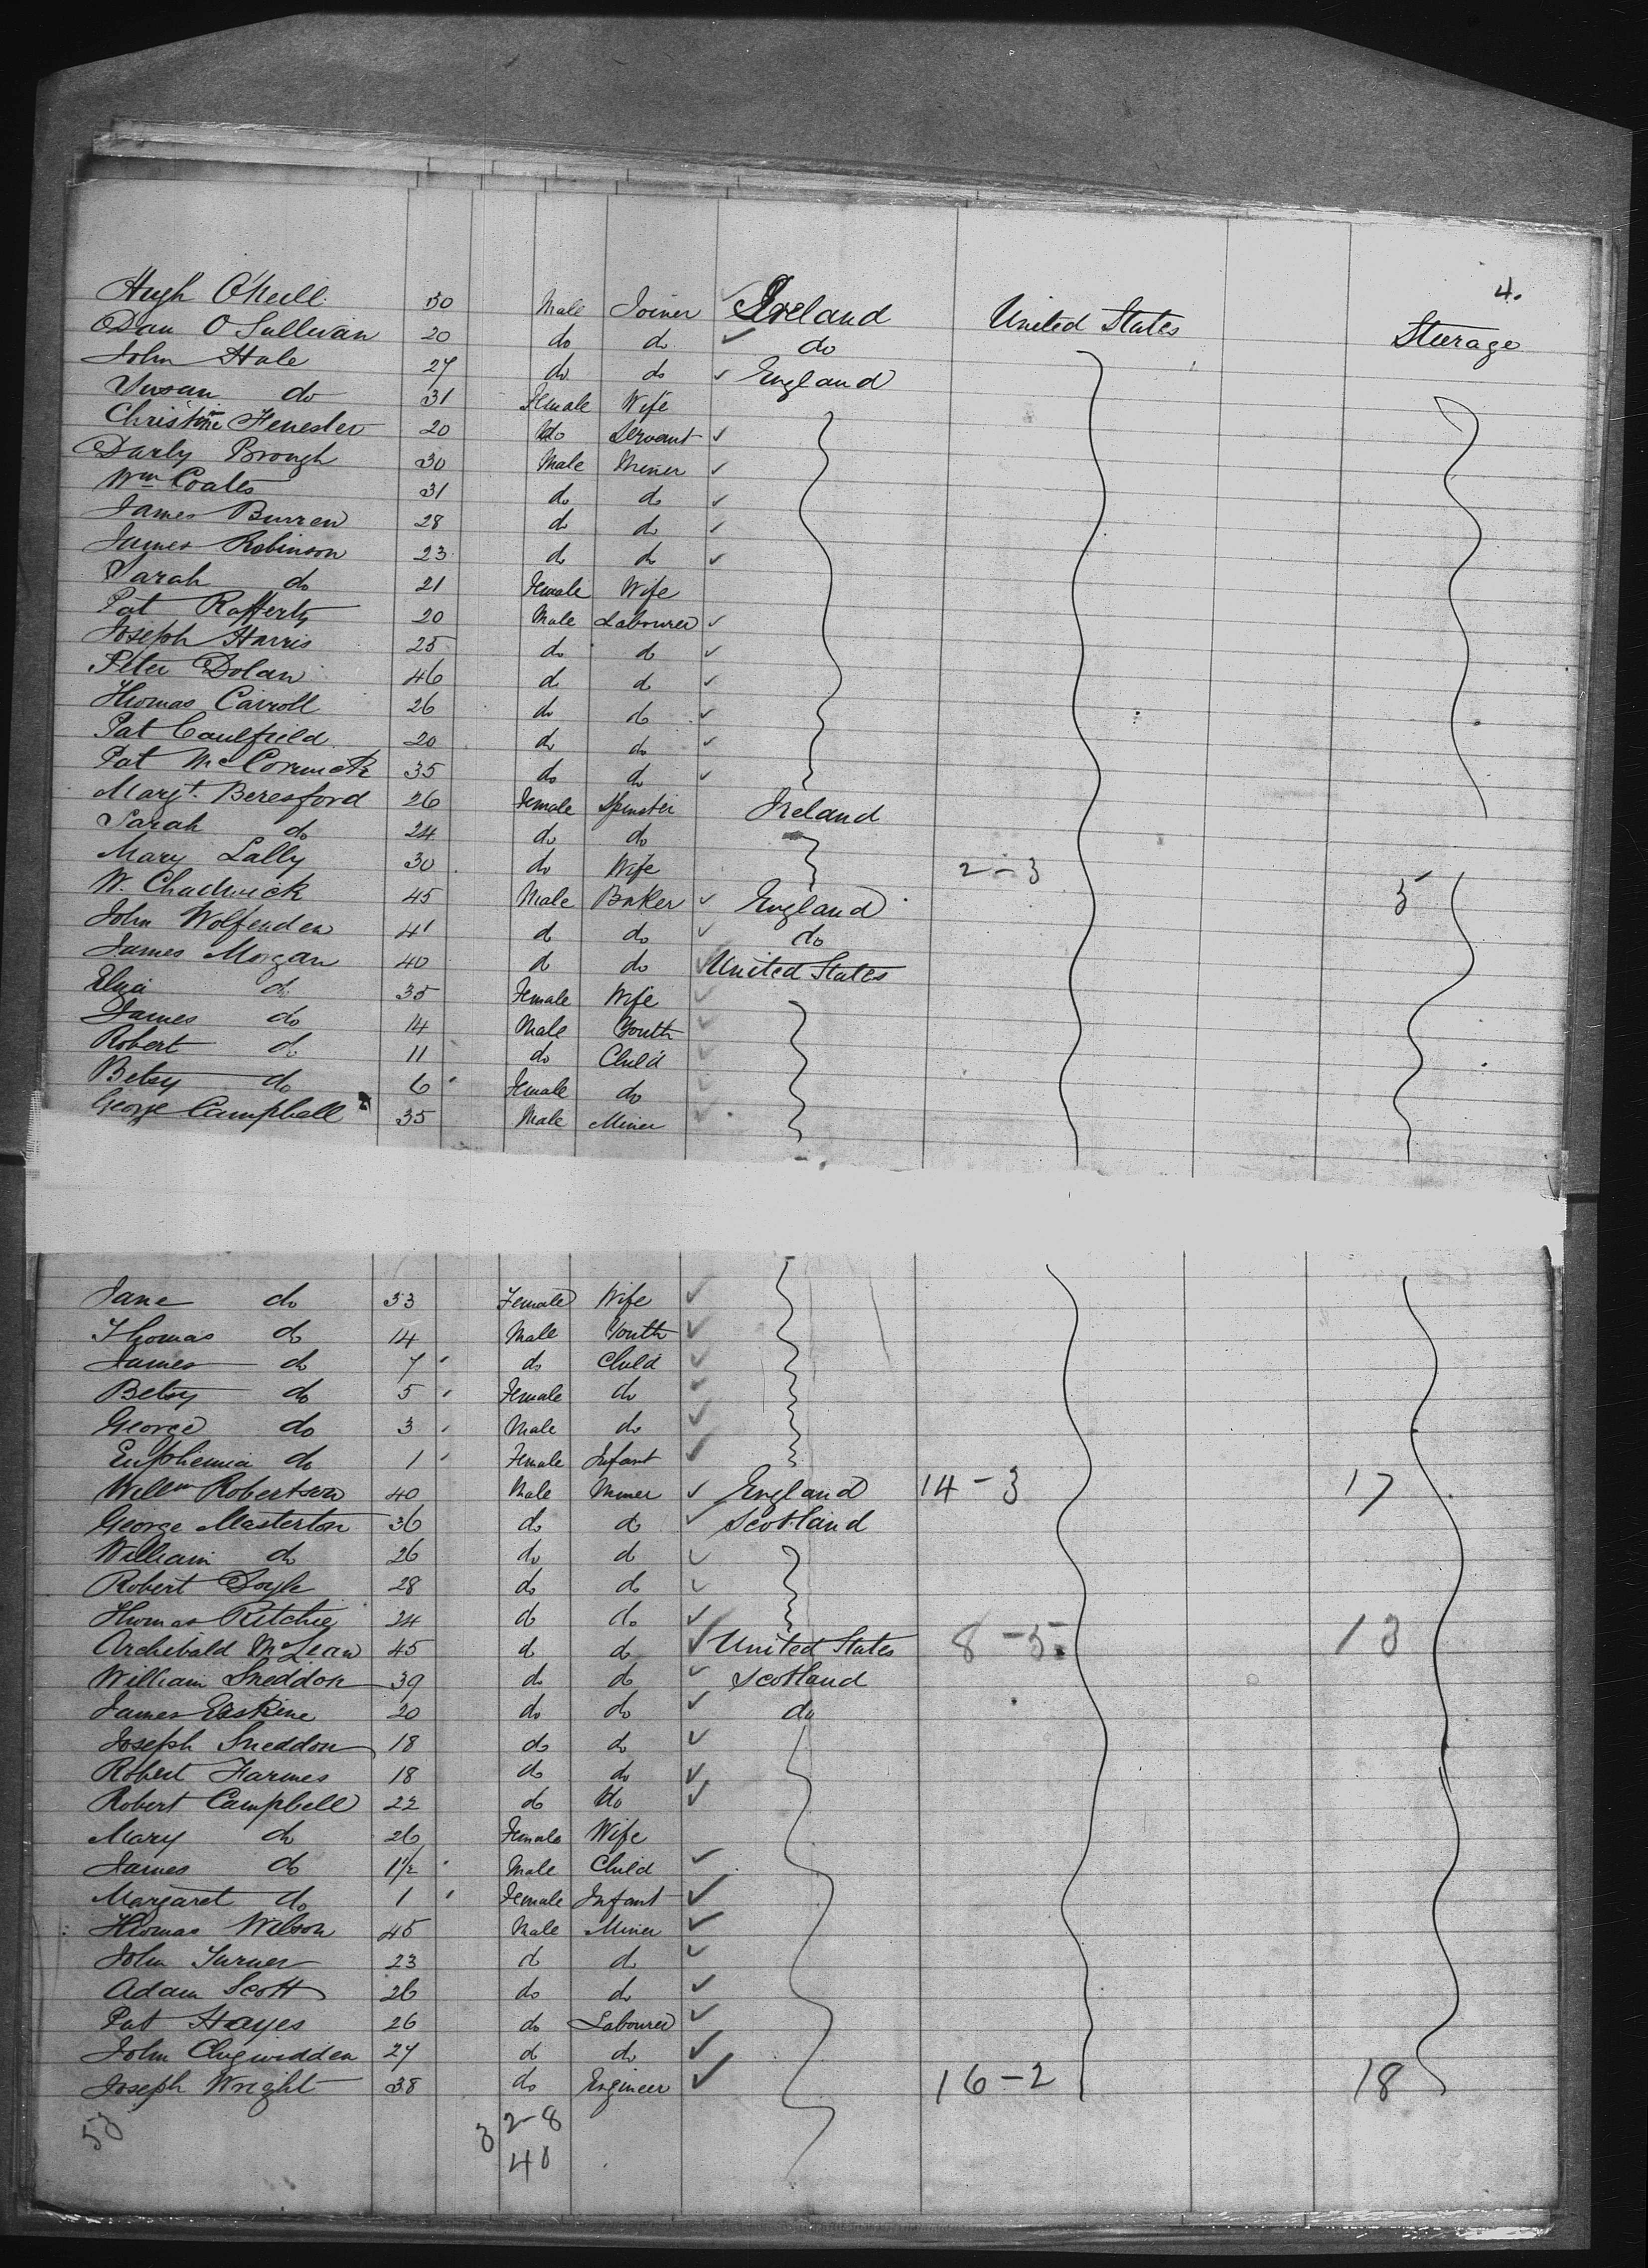 4.
Hugh O'Neill 30 Male Joiner Ireland United States Steerage
Dan O'Sullivan 20 do do do
John Hale 27 do do England
Susan do 31 Female Wife
Christine Fenester 20 do Servant
Darly Brough 30 Male Miner
Wm Coates 31 do do
James Burren 28 do do
James Robinson 23 do do
Sarah do 21 Female Wife
Pat Rafferty 20 Male Labourer
Joseph Harris 25 do do
Peter Dolan 46 do do
Thomas Carroll 26 do do
Pat Caulfield 20 do do
Pat McCormick 35 do do
Margt. Beresford 26 Female Spinster Ireland
Sarah do 24 do do
Mary Lally 30 do Wife 2-3
W. Chadwick 45 Male Baker England 5
John Wolfenden 41 do do do
James Morgan 40 do do United States
Eliza do 35 Female Wife
James do 14 Male Youth
Robert do 11 do Child
Betsy do 6 Female do
George Campbell 35 Male Miner
Jane do 33 Female Wife
Thomas do 14 Male Youth
James do 7 do Child
Betsy do 5 Female do
George do 3 Male do
Euphemia do 1 Female Infant
Willm Robertson 40 Male Miner England 14-3 17
George Masterton 36 do do Scotland
William do 26 do do
Robert Doyle 28 do do
Thomas Ritchie 24 do do
Archibald McLean 45 do do United States 8-5 13
William Sneddon 39 do do Scotland
James Erskine 20 do do do
Joseph Sneddon 18 do do
Robert Farmes 18 do do
Robert Campbell 22 do do
Mary do 26 Female Wife
James do 1½ Male Child
Margaret do 1 Female Infant
Thomas Wilson 45 Male Miner
John Turner 23 do do
Adam Scott 26 do do
Pat Hayes 26 do Labourer
John Chigwidden 27 do do
Joseph Wright 38 do Engineer 16-2 18
53 3 2-8
40